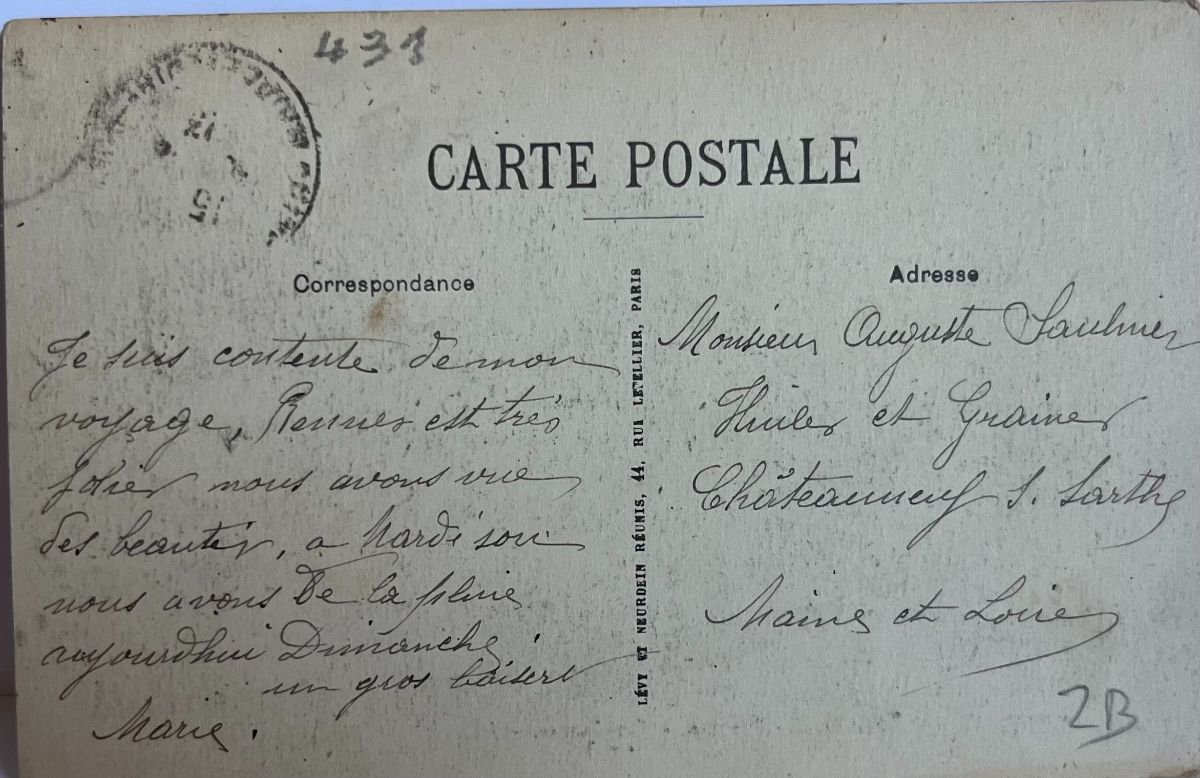 431
CARTE POSTALE
Correspondance
Adresse
Je suis contente de mon
voyage, Rennes est très
jolier nous avons vue
des beautés, a Mardi soir
nous avons De la pluie
aujourdhui Dimanche
un gros baisert
Marie.
LÉVY ET NEURDEIN RÉUNIS, 44, RUE LETELLIER, PARIS
Monsieur Auguste Saulnier
Huiles et Graines
Châteauneuf S. Sarthe
Maine et Loire
2B